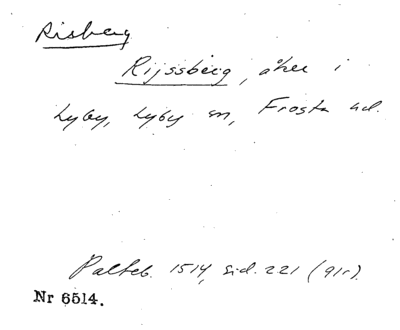 Risberg
Rijssberg, åker i
Lyby, Lyby sn, Frosta hd.
Palteb. 1514, sid. 221 (91r).
Nr 6514.